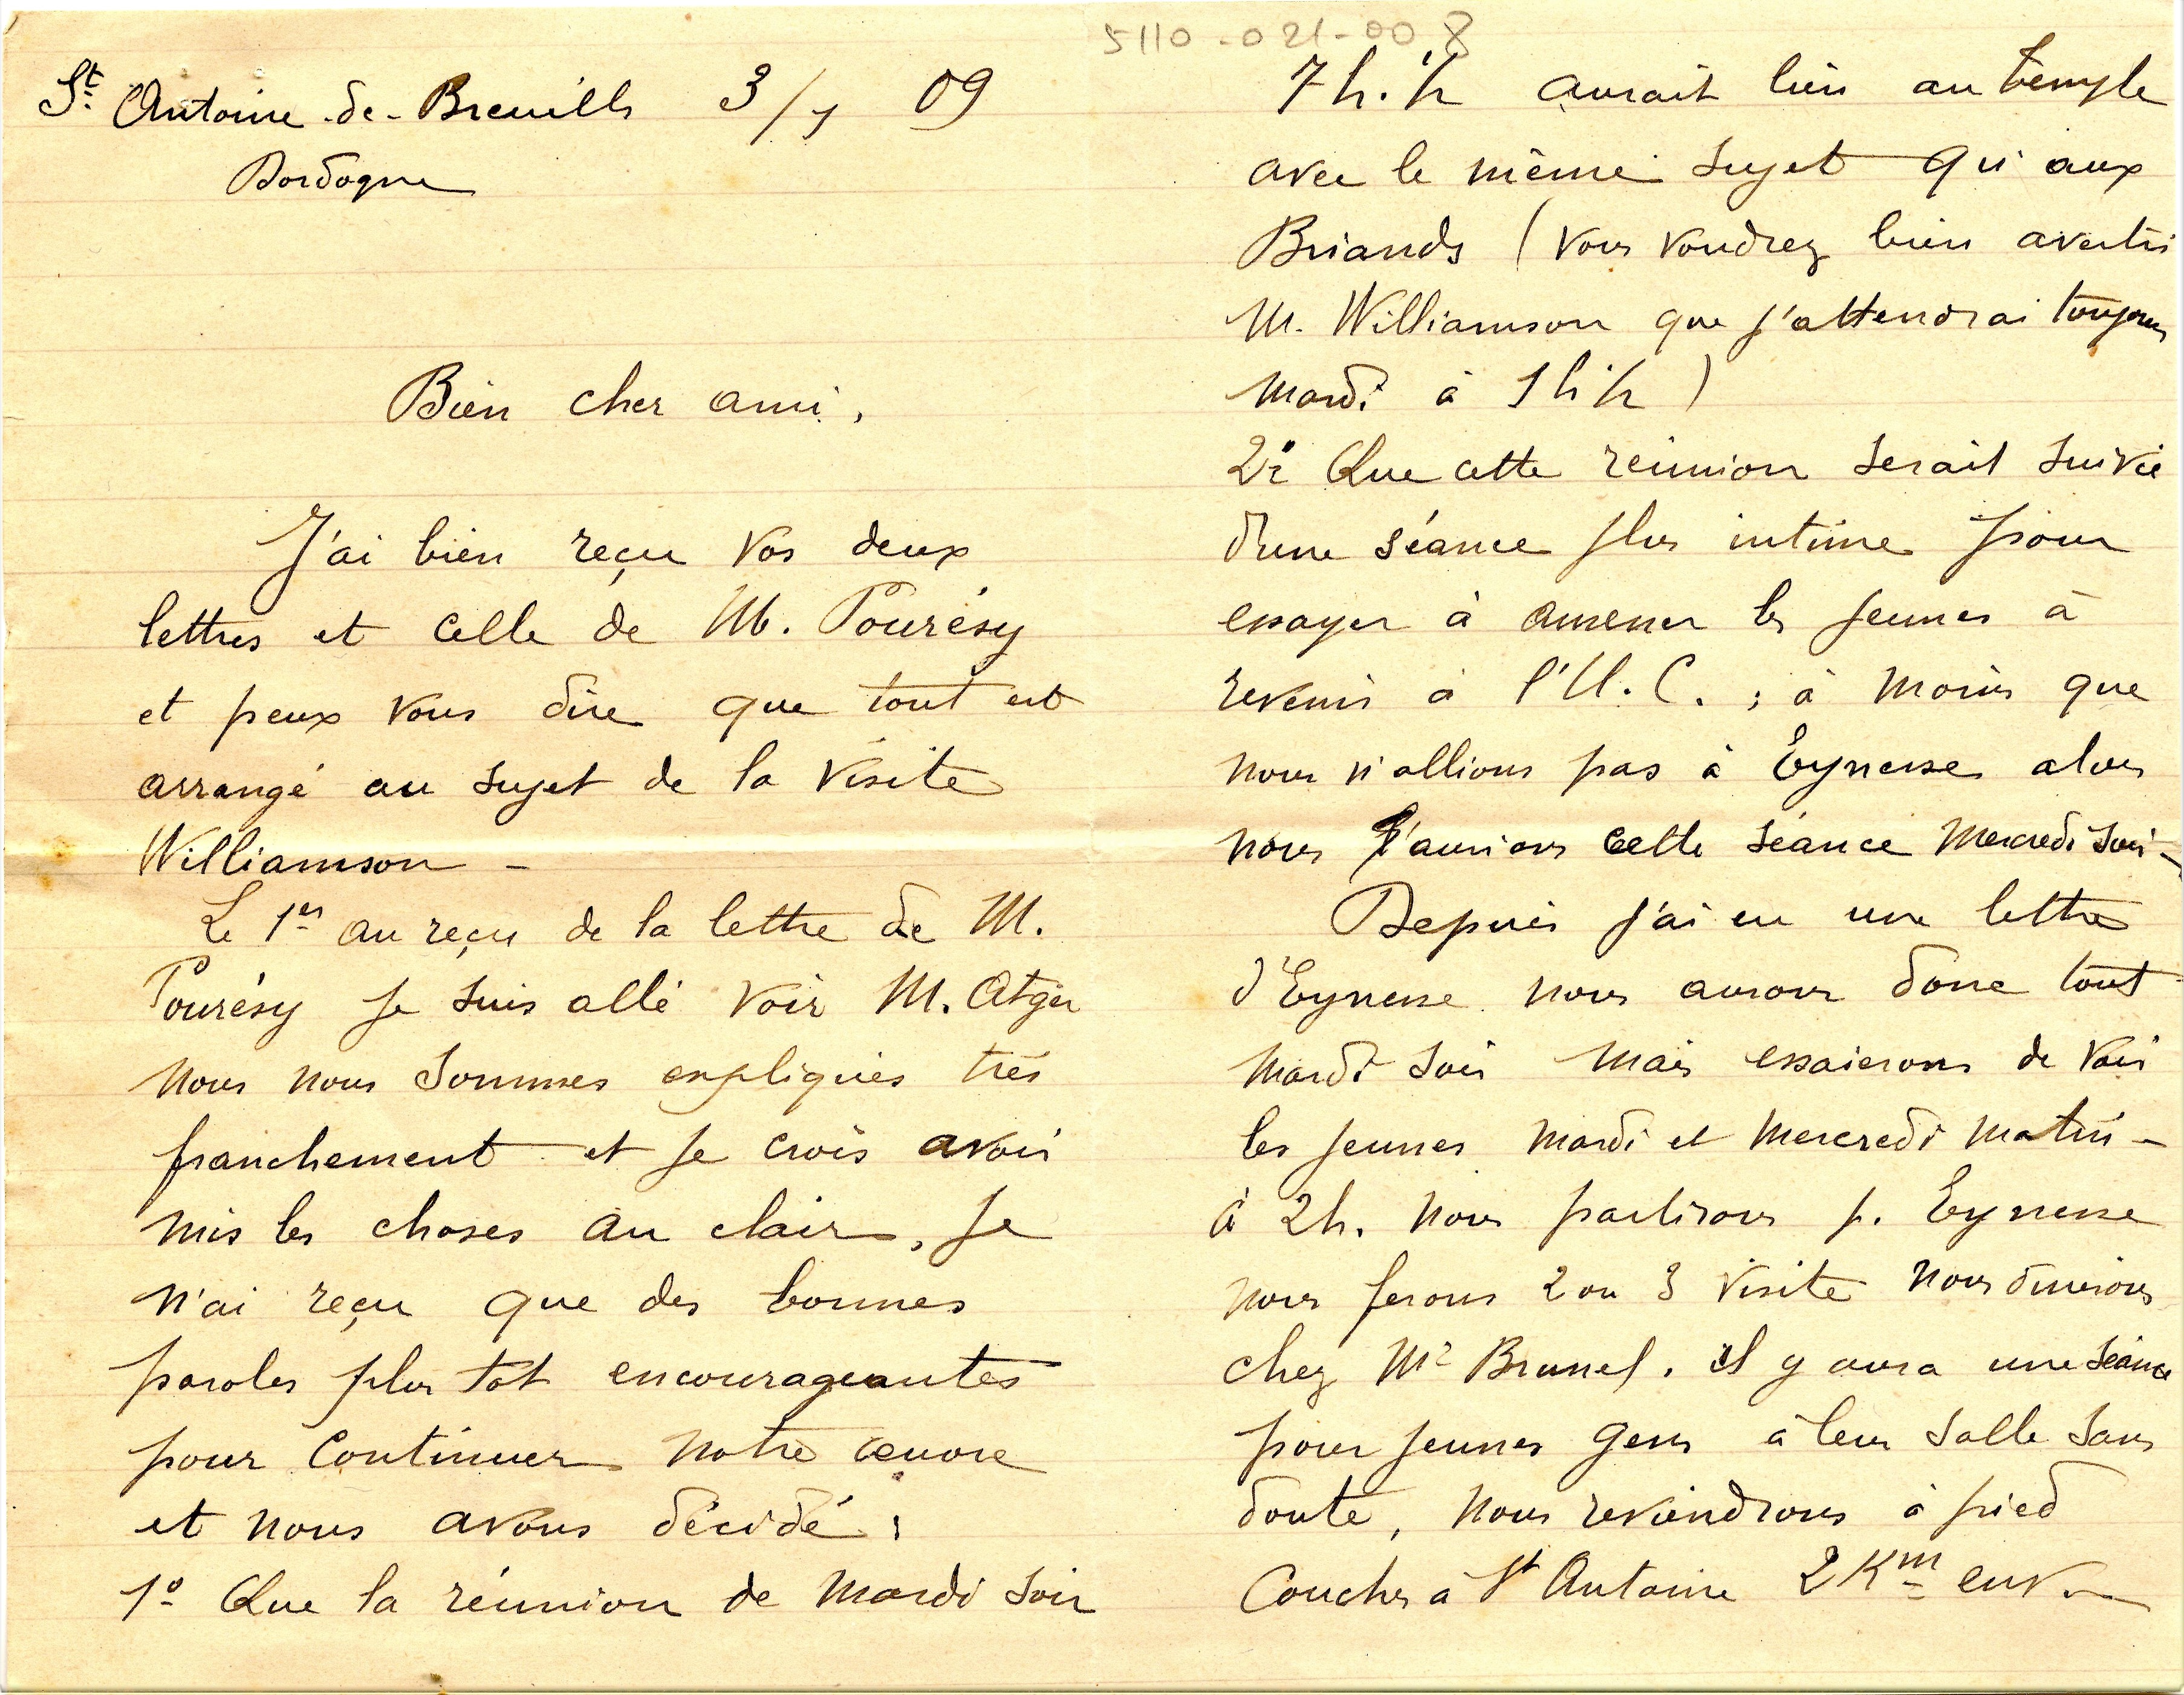 5110-021-008
St Antoine-de-Breuilh 3/1 09
Dordogne
Bien cher ami,
J'ai bien reçu vos deux
lettres et celle de M. Pourésy
et peux vous dire que tout est
arrangé au sujet de la visite
Williamson -
Le 1er au reçu de la lettre de M.
Pourésy je suis allé voir M. Atger
nous nous sommes expliqués très
franchement et je crois avoir
mis les choses au clair, je
n'ai reçu que des bonnes
paroles plus tôt encourageantes
pour continuer notre œuvre
et nous avons décidé :
1º Que la réunion de mardi soir
7h. ½ aurait lieu au temple
avec le même sujet qu'aux
Briands (vous voudrez bien avertir
M. Williamson que j'attendrai toujours
mardi à 1h ½ )
2º Que cette réunion serait suivie
d'une séance plus intime pour
essayer à amener les jeunes à
revenir à l'U.C. ; à moins que
nous n'allions pas à Eynesse alors
nous l'aurions cette séance mercredi soir -
Depuis j'ai eu une lettre
d'Eynesse nous aurons donc tout
mardi soir mais essaierons de voir
les jeunes mardi et mercredi matin -
à 2h. nous partirons p. Eynesse
nous ferons 2 ou 3 visite nous dînerons
chez Mr Brunel. il y aura une séance
pour jeunes gens à leur salle sans
doute, nous reviendrons à pied
coucher à St Antoine 2 Km env.